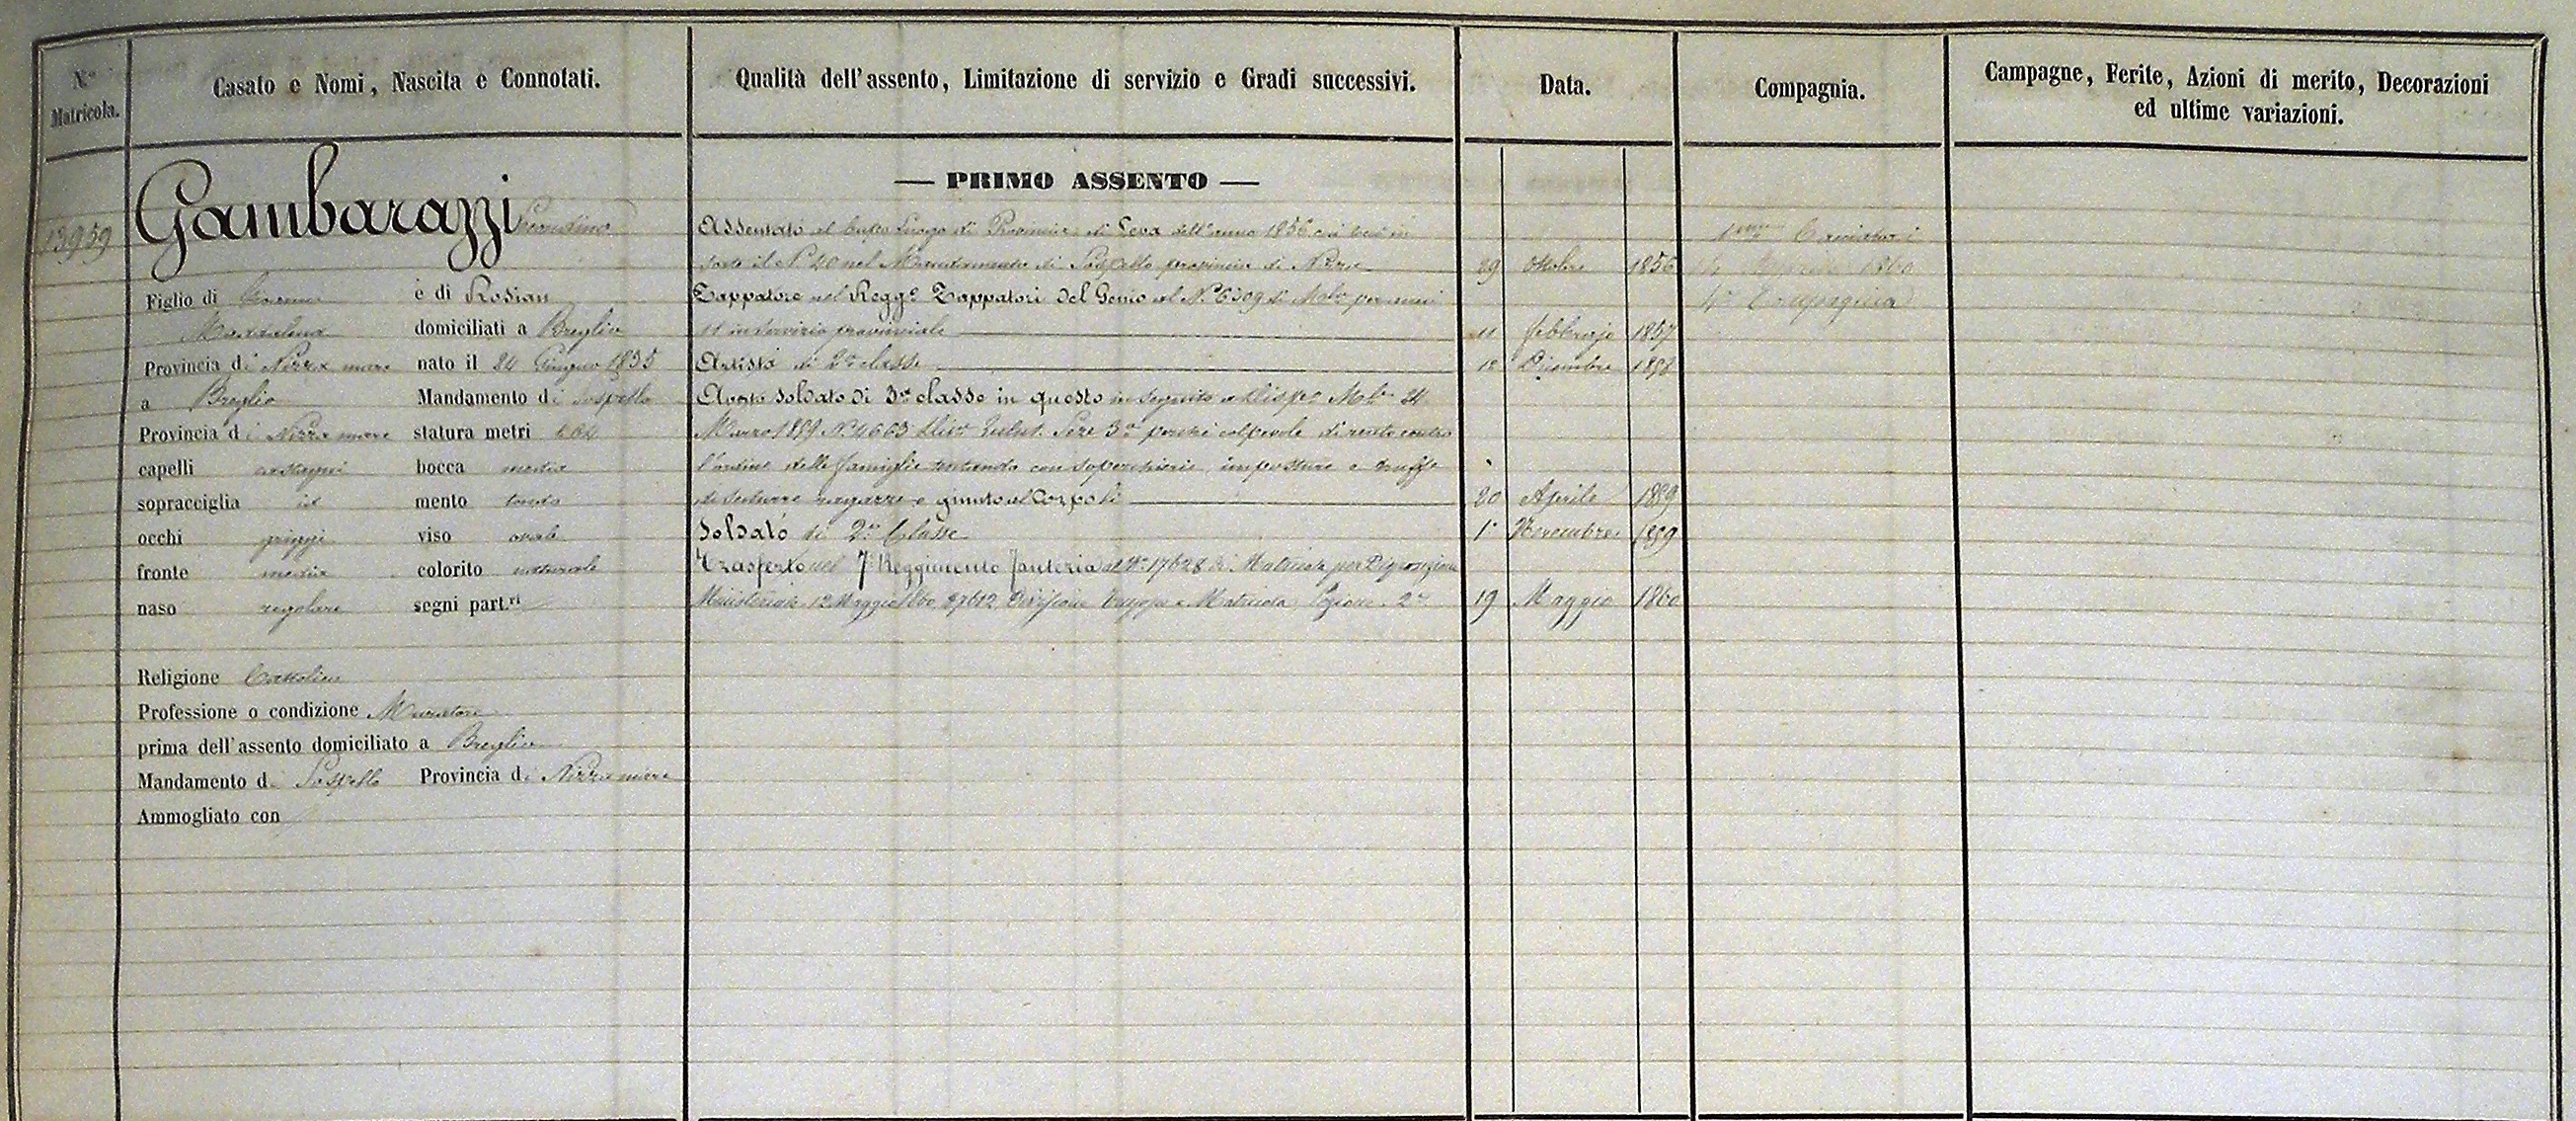 N.° Matricola.
Casato e Nomi, Nascita e Connotati.
Qualità dell'assento, Limitazione di servizio e Gradi successivi.
Data.
Compagnia.
Campagne, Ferite, Azioni di merito, Decorazioni
ed ultime variazioni.
13959
Gambarazzi Secondino
Figlio di e di Rosian
Maddalena domiciliati a Breglio
Provincia di Nizza mare nato il 24 Giugno 1835
a Breglio Mandamento di Sospello
Provincia di Nizza mare statura metri
capelli castagni bocca media
sopracciglia id mento tondo
occhi griggi viso ovale
fronte media colorito naturale
naso regolare segni part.ri
Religione Cattolica
Professione o condizione Muratore
prima dell'assento domiciliato a Breglio
Mandamento di Sospello Provincia di Nizza mare
Ammogliato con
— PRIMO ASSENTO —
Assentato al Capo Luogo di Provincia di Leva dell'anno 1856
sorte il N° 40 nel Mandamento di Sospello provincia di Nizza 29 Ottobre 1856
Zappatore nel Regg.° Zappatori del Genio al N° 6309 di Mola per anni
11 in servizio provinciale 11 febbrajo 1857
Artista di 2a classe Dicembre 1858
soldato di 3a classe in questo in seguito a Dispo
Marzo 1859 N° 4663 perché colpevole di reato contro
l'ordine delle famiglie tentando con soperchierie, imposture e truffe
di sedurre ragazze e giunto al Corpo li 20 Aprile 1859
Soldato di 2a Classe 1° Novembre 1859
Trasferto nel 7° Reggimento fanteria al N° 17628 di Matricola per Disposizione
Ministeriale 12 Maggio 1860 Divisione Truppa e Matricola 2a 19 Maggio 1860
Cacciatori
1860
4a Compagnia